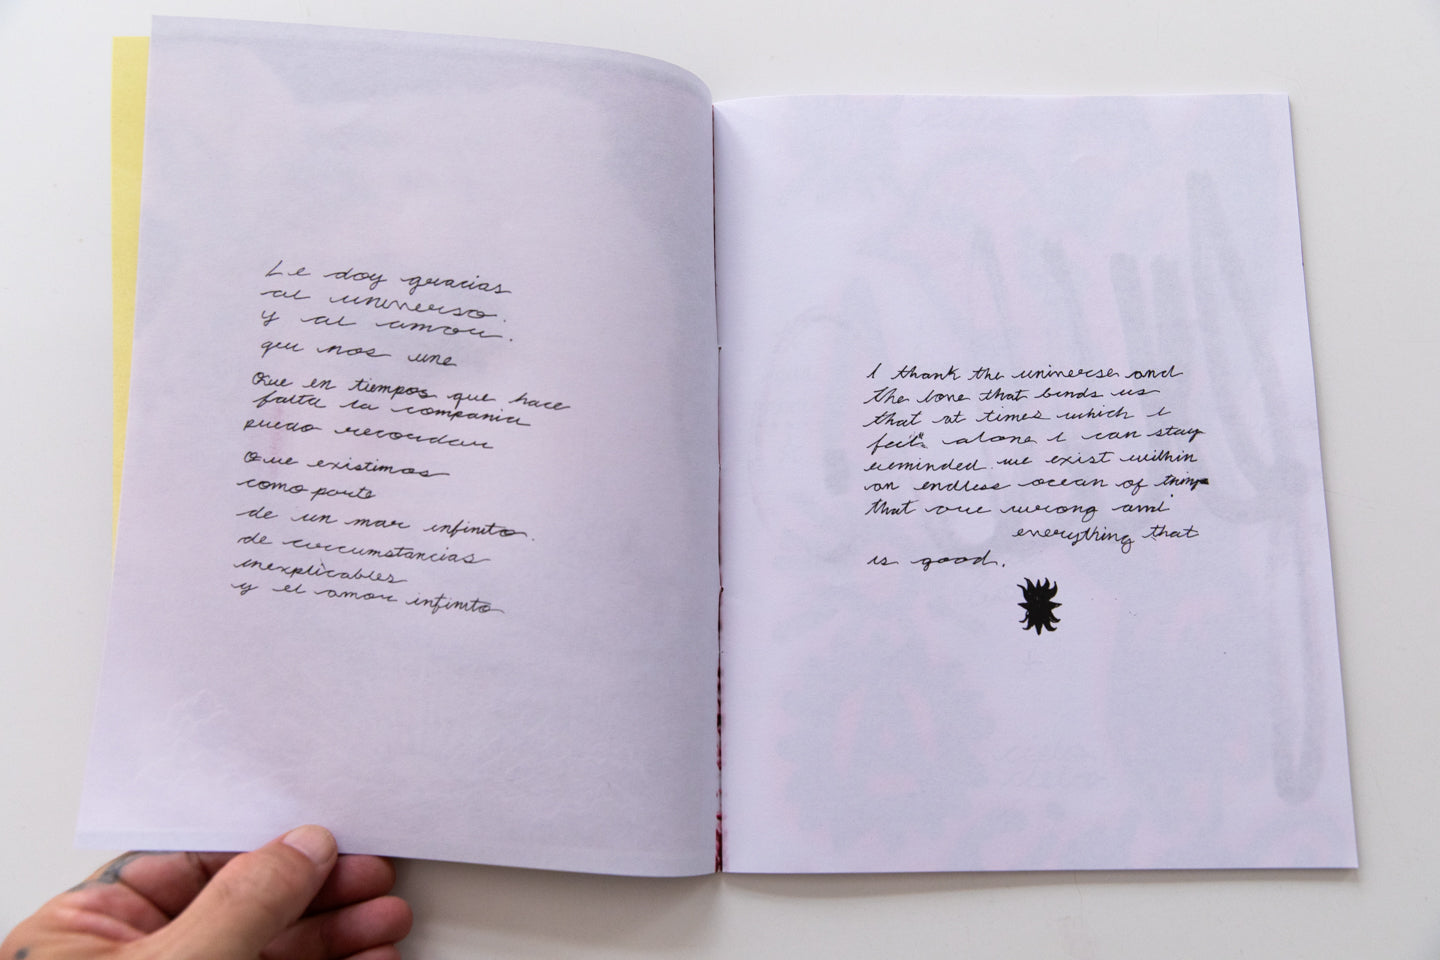 Le doy gracias
al universo.
y al amor.
que nos une
Que en tiempos que hace
falta la compania
puedo recordar
Que existimos
como parte
de un mar infinito.
de circumstancias
inexplicables
y el amor infinito
I thank the universe and
the love that binds us
that at times which I
feel alone I can stay
reminded we exist within
an endless ocean of things
that are wrong and
everything that
is good.